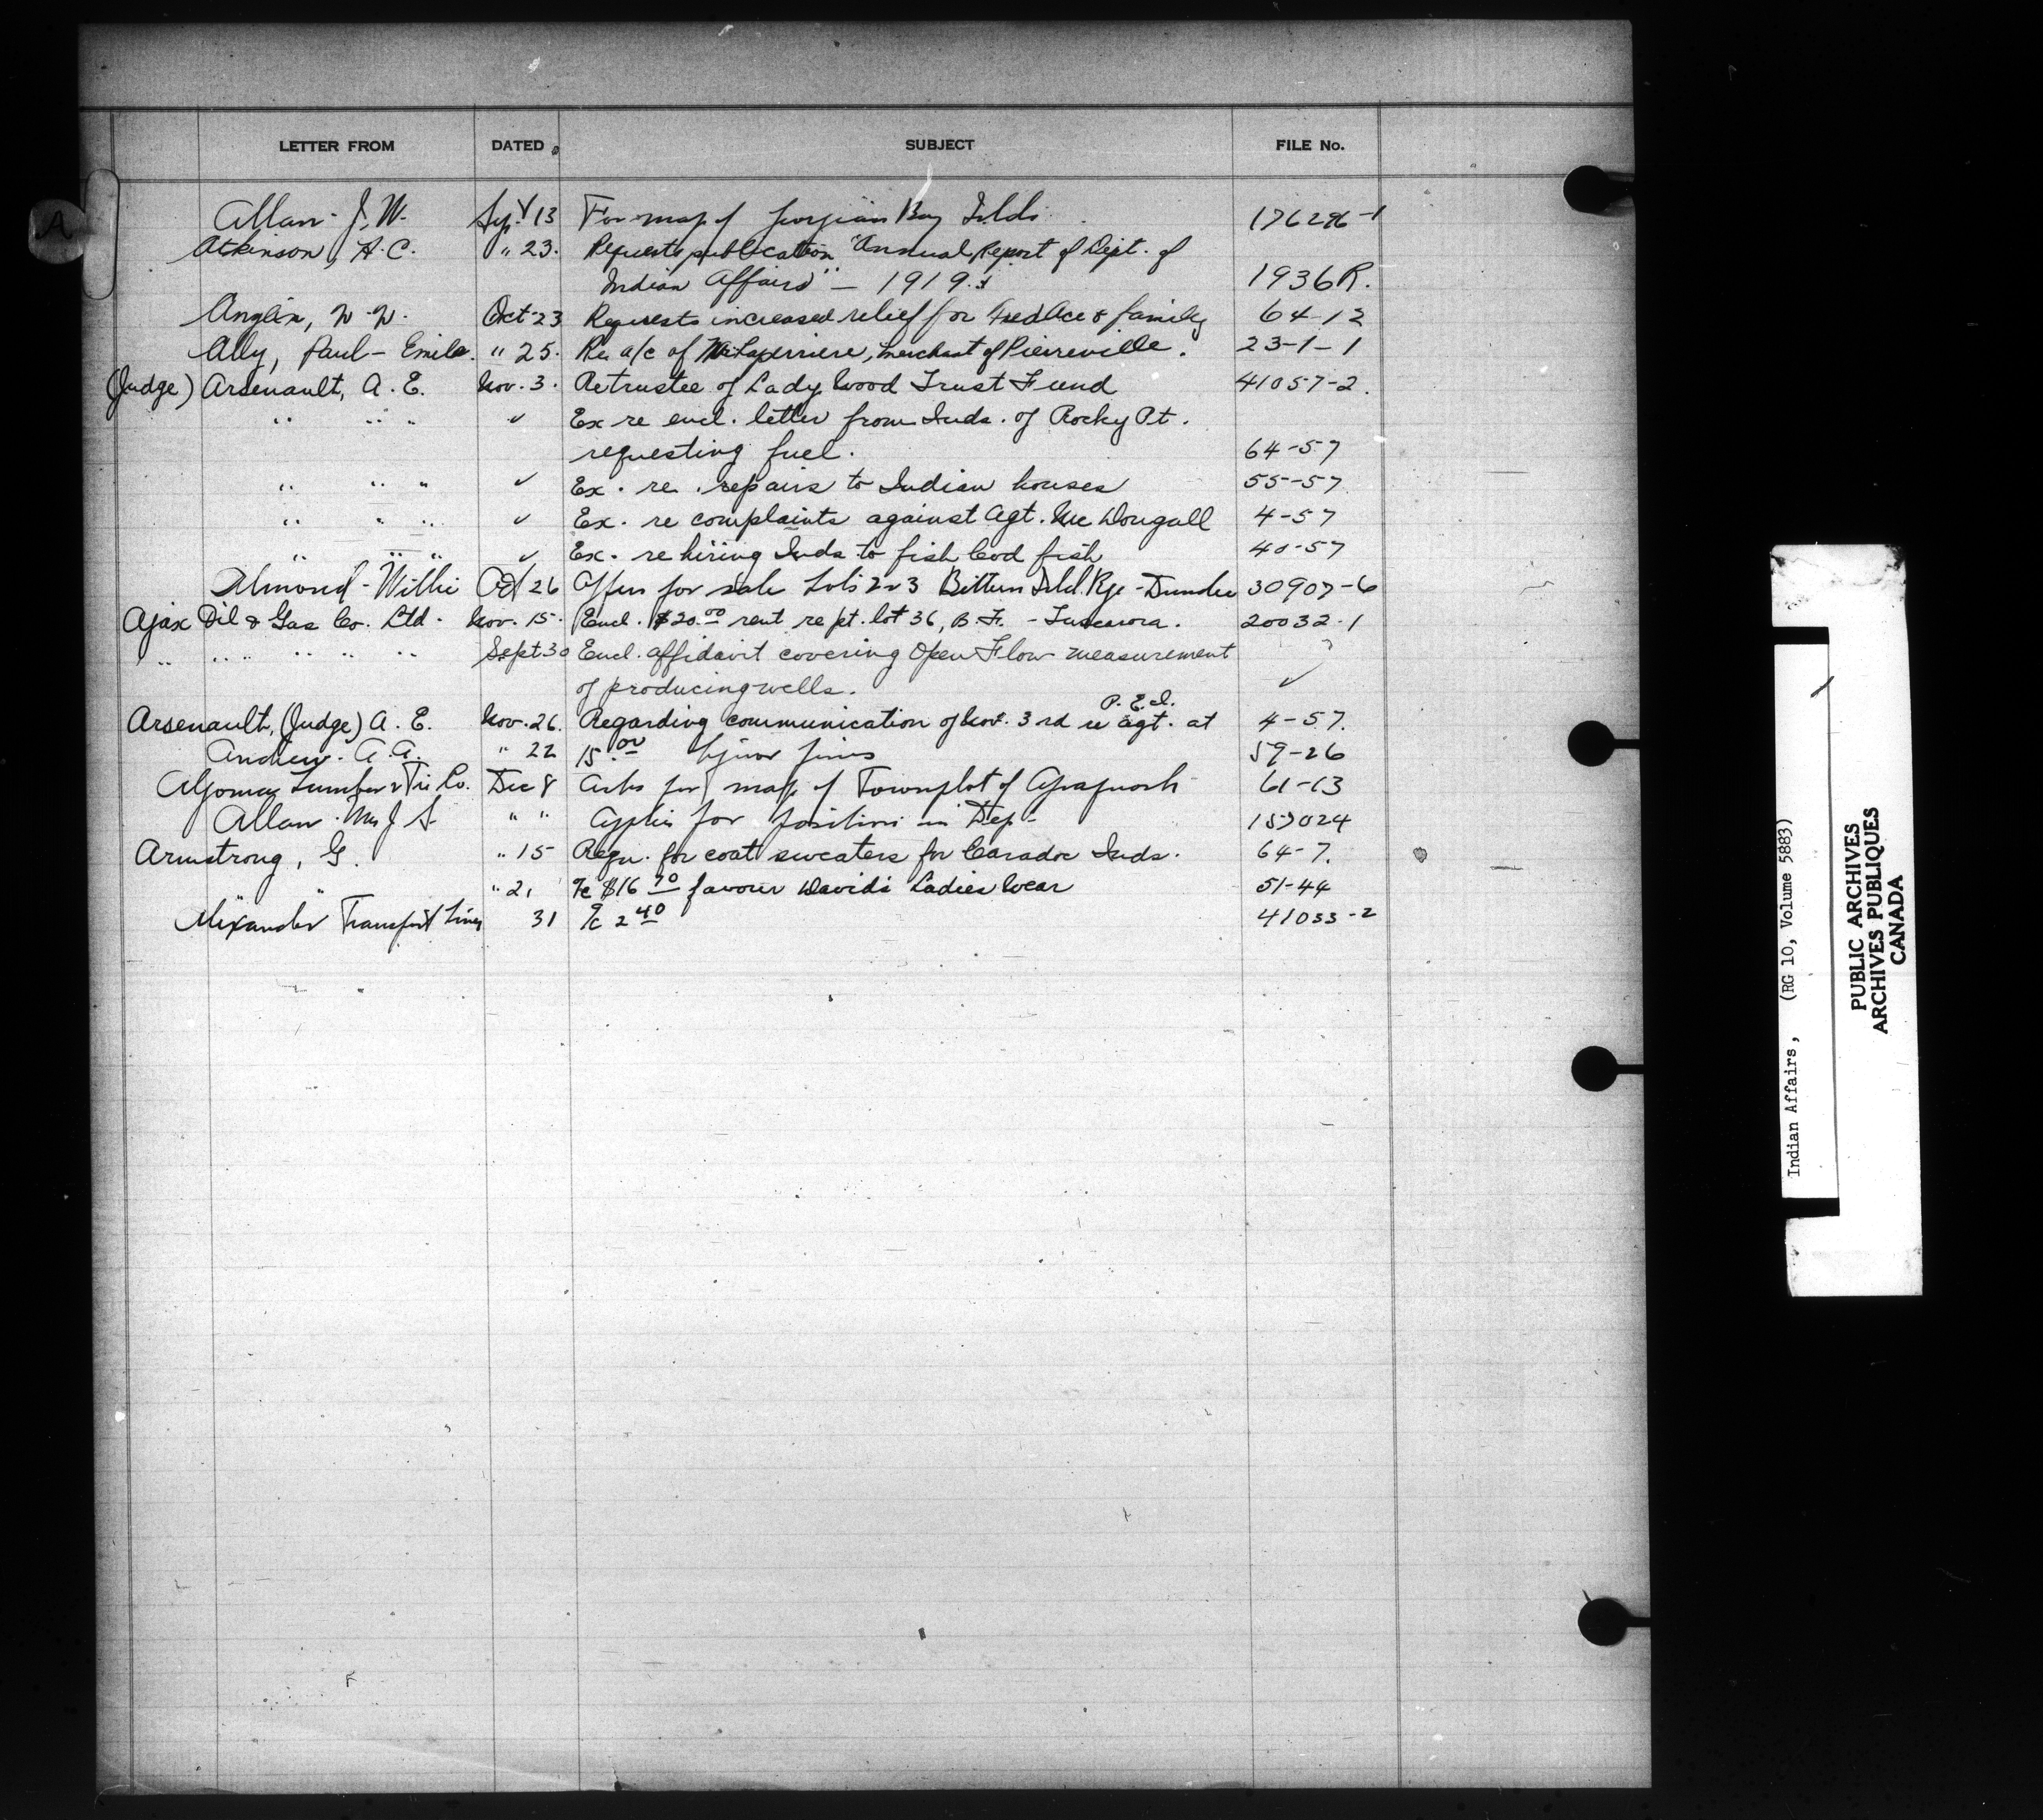 A
LETTER FROM DATED SUBJECT FILE No.
Allan - J. W. Sept 13 For map of Georgian Bay Islds 176296-1
Atkinson, H. C. " 23. Requests publication "Annual Report of Dept. of
Indian Affairs" - 1919. 1936R.
Anglin, W. W. Oct 23 Requests increased relief for Fred Ace & family 64-12
Ally, Paul-Emile. " 25. Re a/c of Laperriere, merchant of Pierreville. 23-1-1
(Judge) Arsenault, A. E. Nov. 3. Re trustee of Lady Wood Trust Fund 41057-2.
" " " ✓ Ex re encl. letter from Inds. of Rocky Pt.
requesting fuel. 64-57
" " " ✓ Ex. re. repairs to Indian houses 55-57
" " " ✓ Ex. re complaints against Agt. McDougall 4-57
" " " ✓ Ex. re hiring Inds to fish Cod fish 40-57
Almond - Willie Oct 26 Offers for sale Lots 2 & 3 Isld. Rge - Dundee 30907-6
Ajax Oil & Gas Co. Ltd. Nov. 15. Encl. $20.00 rent re pt. lot 36, B. F. - Tuscarora. 20032-1
" " " " " " Sept 30 Encl. affidavit covering Open Flow measurement ?
of producing wells. ✓
P. E. I.
Arsenault, (Judge) A. E. Nov. 26. Regarding communication of Nov. 3rd re agt. at 4-57.
Andrew. A. A. " 22 15.00 Liquor fines 59-26
Algoma Lumber & Tie Co. Dec 8 Asks for map of Townplot of 61-13
Allan. Mrs J S. " " Applies for position in Dep- 157024
Armstrong, G. " 15 Requ. for coat sweaters for Caradoc Inds. 64-7.
" " " 21 a/c $16.70 favour David's Ladies Wear 51-44
Alexander Transport Lines 31 a/c 2.40 41033-2
Indian Affairs, (RG 10, Volume 5883)
PUBLIC ARCHIVES
ARCHIVES PUBLIQUES
CANADA